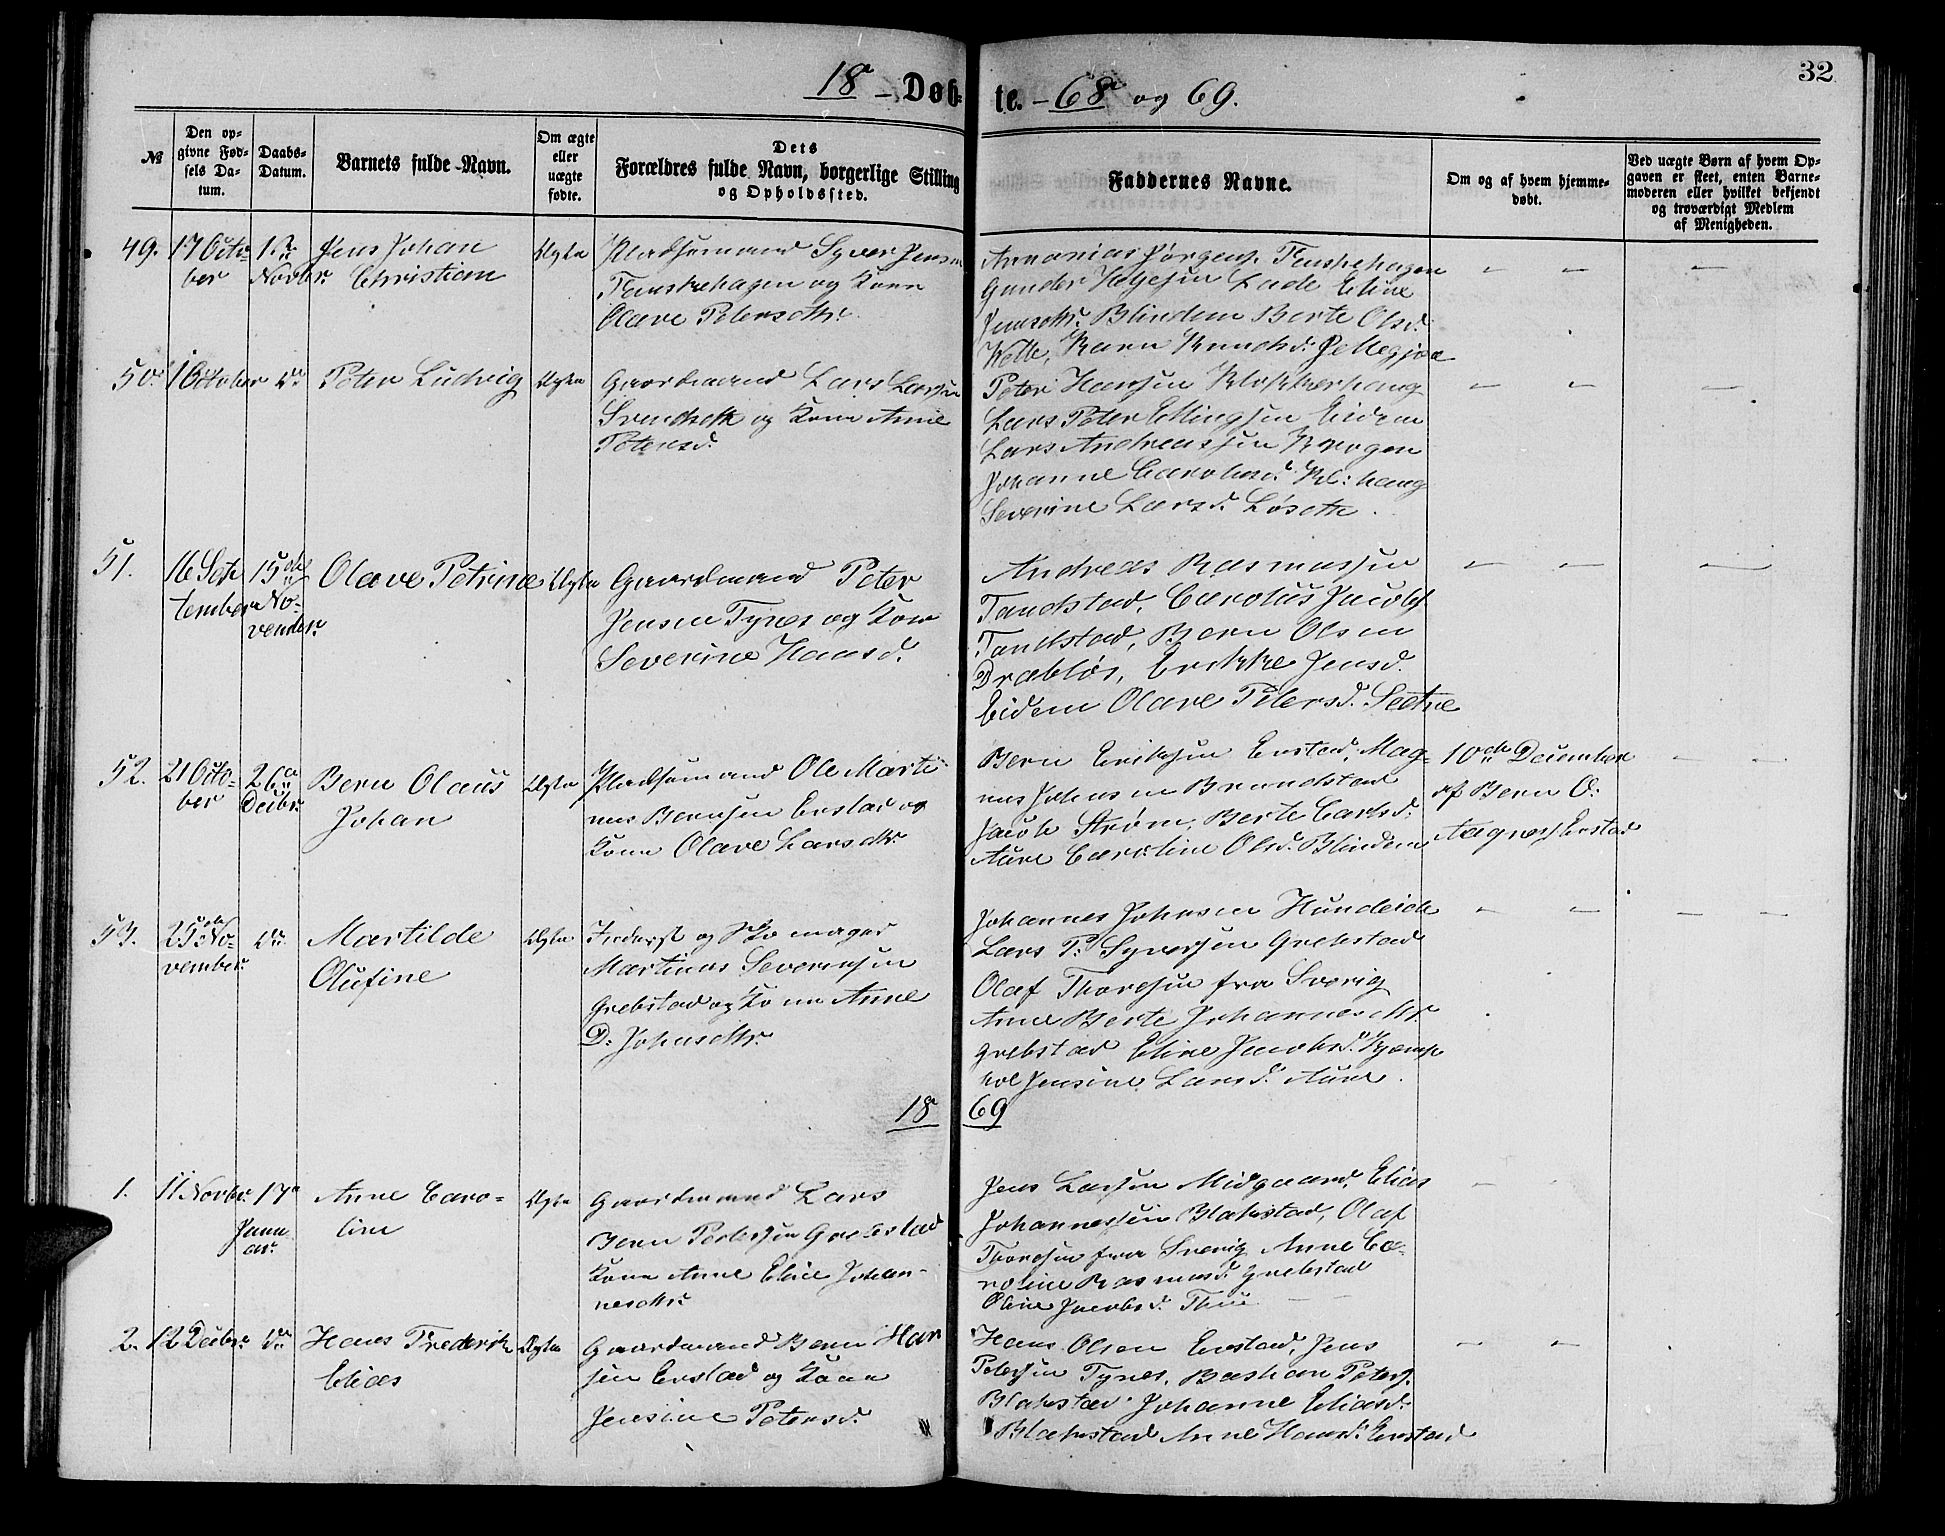 32
18 - Døb- te. - 68 og 69.
№
Den op-
givne Fød-
sels Da-
tum.
Daabs-
Datum.
Barnets fulde Navn.
Om ægte
eller
uægte
fødte.
Dets
Forældres fulde Navn, borgerlige Stilling
og Opholdssted.
Faddernes Navne.
Om og af hvem hjemme-
døbt.
Ved uægte Børn af hvem Op-
gaven er skeet, enten Barne-
moderen eller hvilket bekjendt
og troværdigt Medlem
af Menigheden.
49.
17 Octo-
ber
1ste
Novbr.
Jens Johan
Christian
Ægte
Pladsemand Syver Jensen
Fauskehagen og Kone
Olave Petersdtr.
Ananias Jørgens. Fauskehagen
Gunder Lade Eline
Jensdtr. Blindem Berte Olsd.
Welle, Karn Knudsd.
50.
1 October
Do
Peter Ludvig
Ægte
Gaardmand Lars Larsen
og Kone Anne
Petersd.
Peter Hansen Klokkerhaug
Lars Peter Ellingsen Eidem
Lars Andreassen Krogen
Johanne Carolusd. Kl: haug
Severine Larsd. Løseth.
51.
16 Sep-
tember
15de
No-
vember.
Olave Petrine
Ægte
Gaardmand Peter
Jensen Tynes og Kone
Severine Hansd.
Andreas Rasmussen
Tandstad, Carolus Jacobs.
Tandstad, Bern Olsen
Drabløs, Erikke Jensd.
Eidem Olave Petersd. Sætre
52.
21 Octo-
ber
26de
Decbr.
Bern Olaus
Johan
Ægte
Pladsemand Ole Marti-
nus Bernsen Erstad og
Kone Olave Larsdtr.
Bern Eriksen Erstad, Mag-
nus Johnsen Brandstad
Jacob Strøm, Berte Carlsd.
Aure Caroline Olsd. Blindem
10de December
af Bern O:
Aagnes Erstad
53.
25de No-
vember.
Do
Martilde
Olufine
Ægte
Inderst og Skomager
Martinus Severinsen
Grebstad og Kone Anne
D. Johnsdtr.
Johannes Johnsen Hundeide
Lars P. Syversen Grebstad
Olaf Thoresen fra Sverig
Anne Berte Johannesdtr.
Grebstad Eline Jacobsd.
Jensine Larsd. Aure.
18 69
1.
11 Novbr.
17de
Janu
ar.
Anne Caro-
line
Ægte
Gaardmand Lars
Bern Pedersen Grebstad
Kone Anne Eline Johan-
nesdtr.
Jens Larsen Midgaard, Elias
Johannessen Blakstad, Olaf
Thoresen fra Sverig Anne Ca-
roline Rasmusd. Grebstad
Oline Jacobsd. Thue
2.
12 Decbr.
Do
Hans Frederik
Elias
Ægte
Gaardmand Bern Han
sen Erstad og Kone
Jensine Petersd.
Hans Olsen Erstad, Jens
Petersen Tynes, Bastian Peters.
Blakstad Johanne Eliasd.
Blakstad Anne Hansd. Erstad